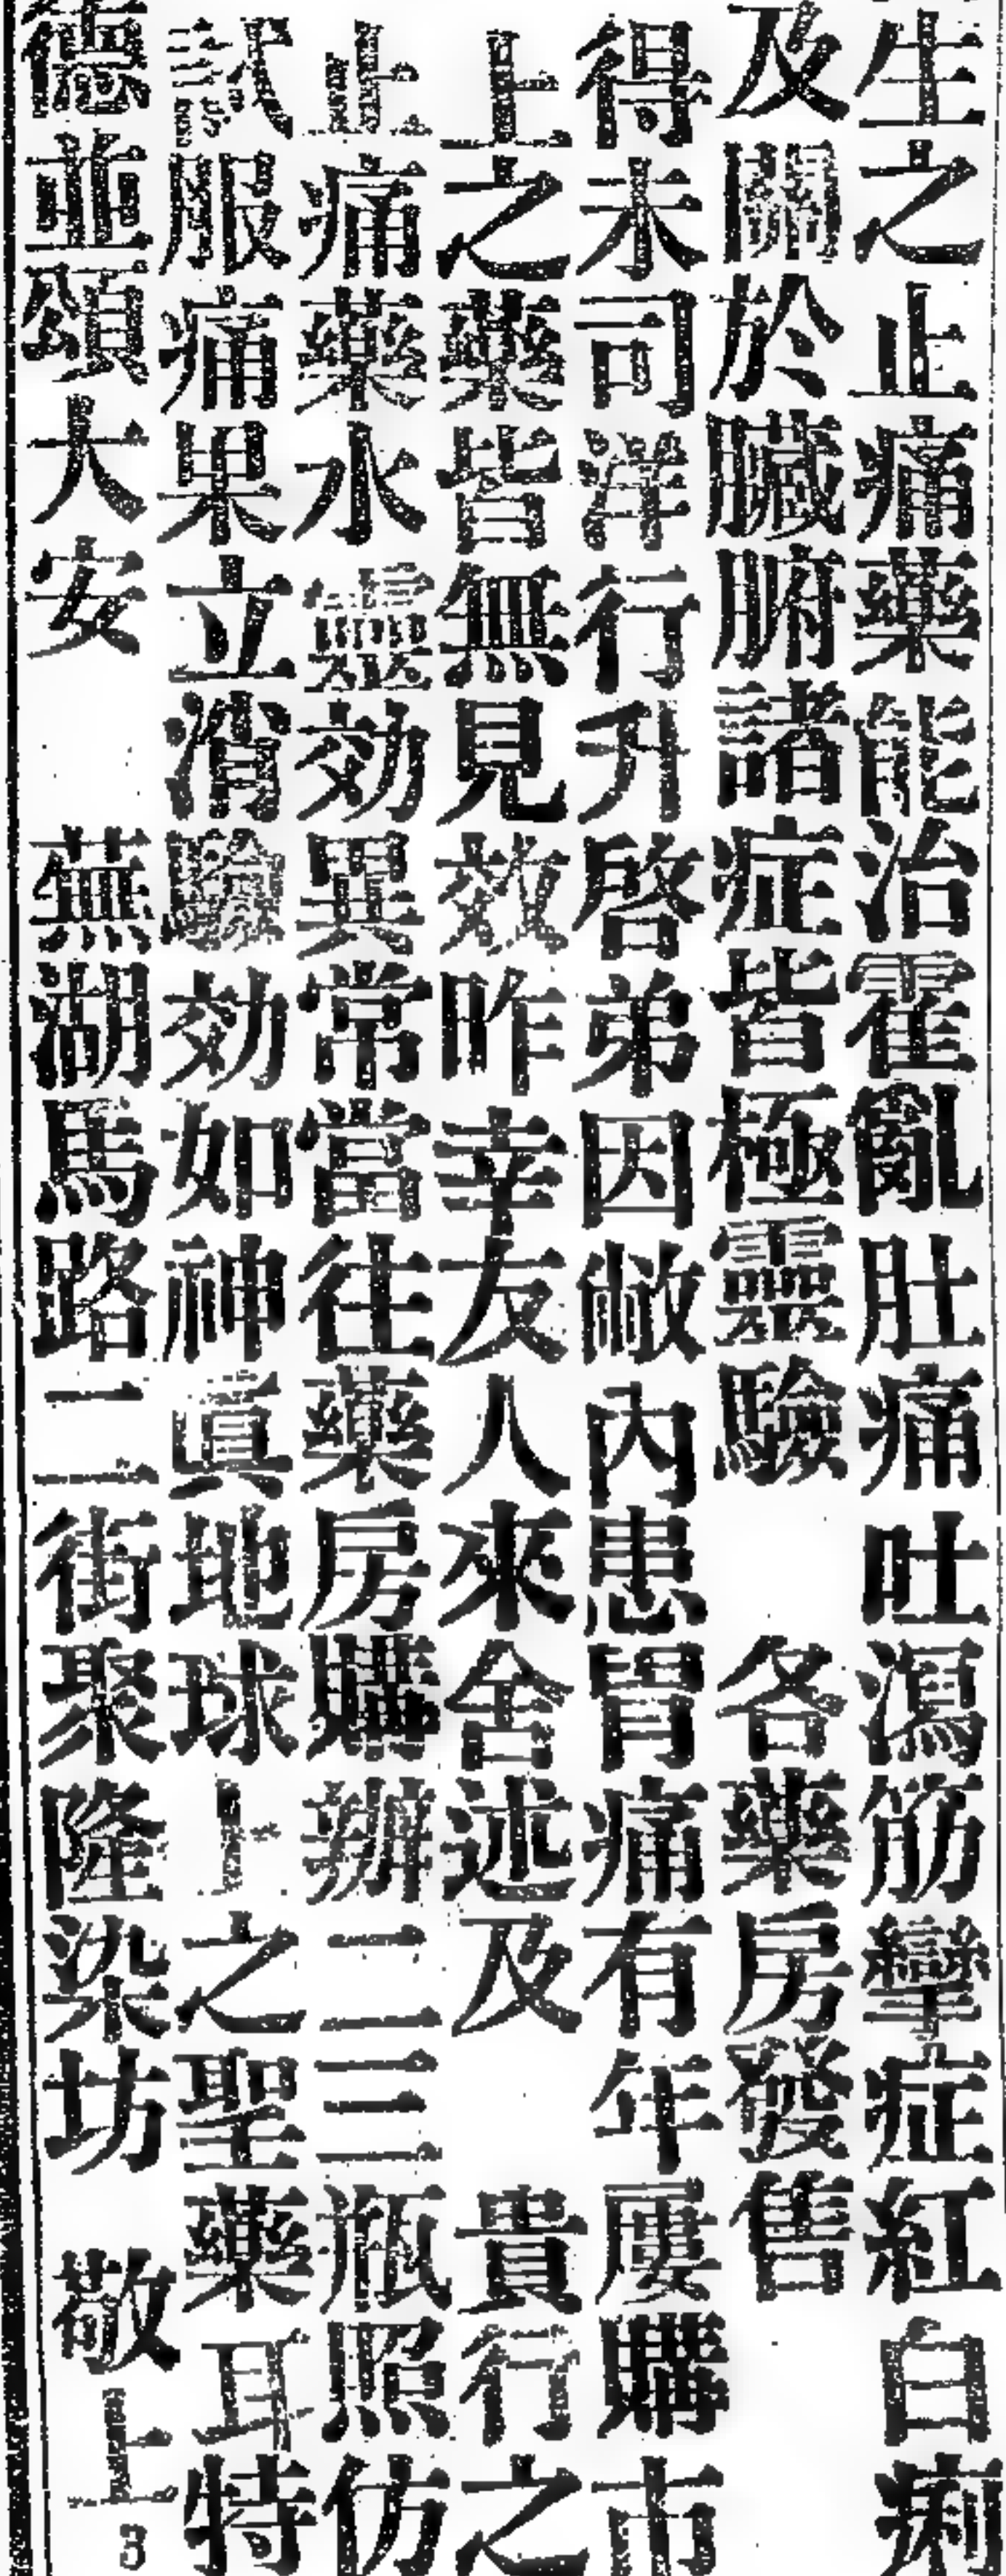 生之止痛藥能治霍亂肚痛吐瀉筋攣症紅白痢
及關於臟腑諸症皆極靈驗　各藥房發售
得未司洋行升啓弟因敝內患胃痛有年屢購市
上之藥皆無見效昨幸友人來舍述及　貴行之
止痛藥水靈効異常當往藥房購辦二三瓶照仿
試服痛果立消驗効如神眞地球上之聖藥耳特
德並頌大安　蕪湖馬路二街聚隆染坊　敬上
3